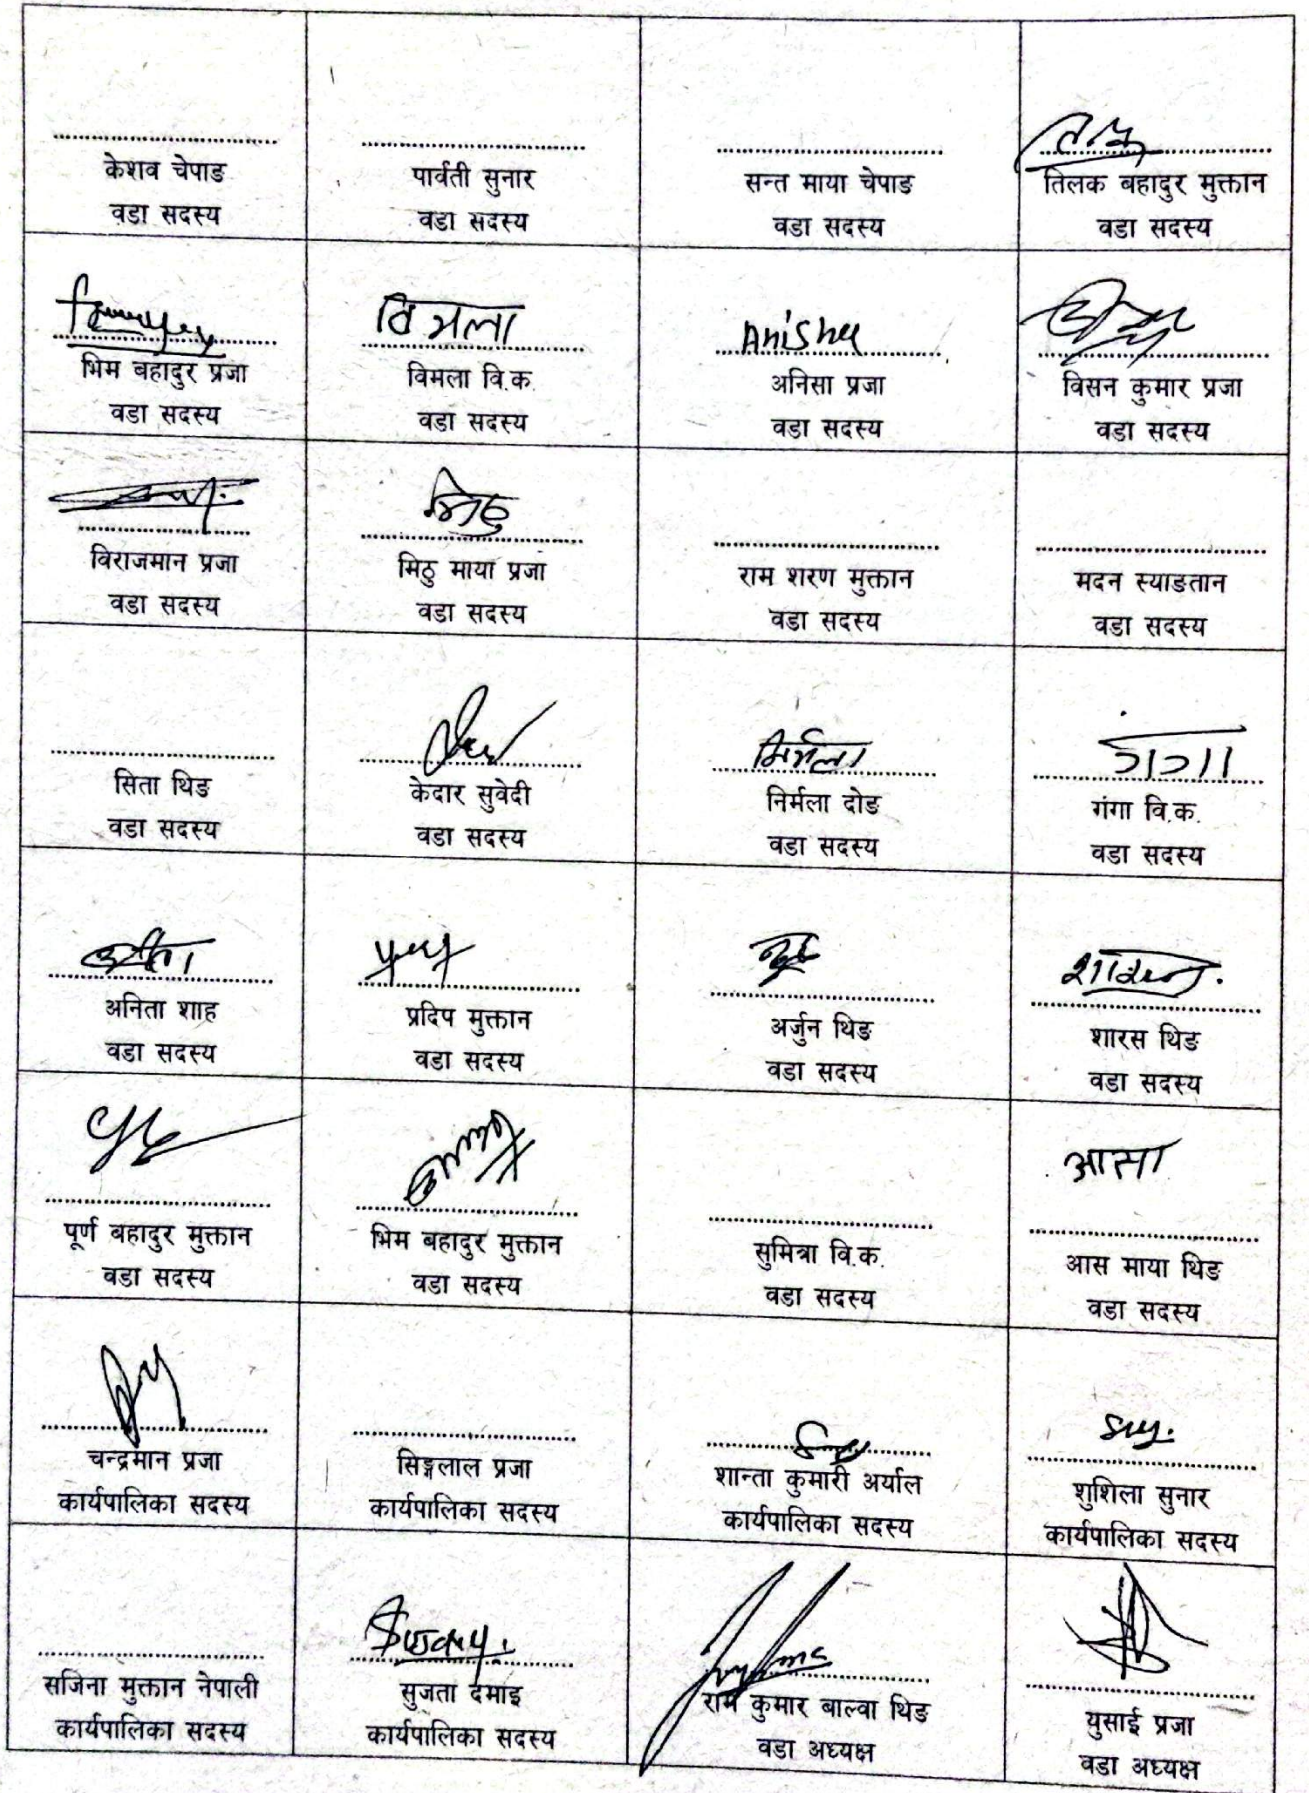 केशव चेपाङ
वडा सदस्य
पार्वती सुनार
वडा सदस्य
सन्त माया चेपाङ
वडा सदस्य
तिलक बहादुर मुक्तान
वडा सदस्य
भिम बहादुर प्रजा
वडा सदस्य
विमला
विमला वि.क.
वडा सदस्य
Anisha
अनिसा प्रजा
वडा सदस्य
विसन कुमार प्रजा
वडा सदस्य
विराजमान प्रजा
वडा सदस्य
मिठु
मिठु माया प्रजा
वडा सदस्य
राम शरण मुक्तान
वडा सदस्य
मदन स्याङतान
वडा सदस्य
सिता थिङ
वडा सदस्य
केदार सुवेदी
वडा सदस्य
निर्मला
निर्मला दोङ
वडा सदस्य
गंगा
गंगा वि.क.
वडा सदस्य
अनिता शाह
वडा सदस्य
प्रदिप मुक्तान
वडा सदस्य
अर्जुन थिङ
वडा सदस्य
शारस थिङ
वडा सदस्य
पूर्ण बहादुर मुक्तान
वडा सदस्य
भिम बहादुर मुक्तान
वडा सदस्य
सुमित्रा वि.क.
वडा सदस्य
आसा
आस माया थिङ
वडा सदस्य
चन्द्रमान प्रजा
कार्यपालिका सदस्य
सिङ्गलाल प्रजा
कार्यपालिका सदस्य
शान्ता कुमारी अर्याल
कार्यपालिका सदस्य
शुशिला सुनार
कार्यपालिका सदस्य
सजिना मुक्तान नेपाली
कार्यपालिका सदस्य
सुजता दमाइ
कार्यपालिका सदस्य
राम कुमार बाल्वा थिङ
वडा अध्यक्ष
युसाई प्रजा
वडा अध्यक्ष